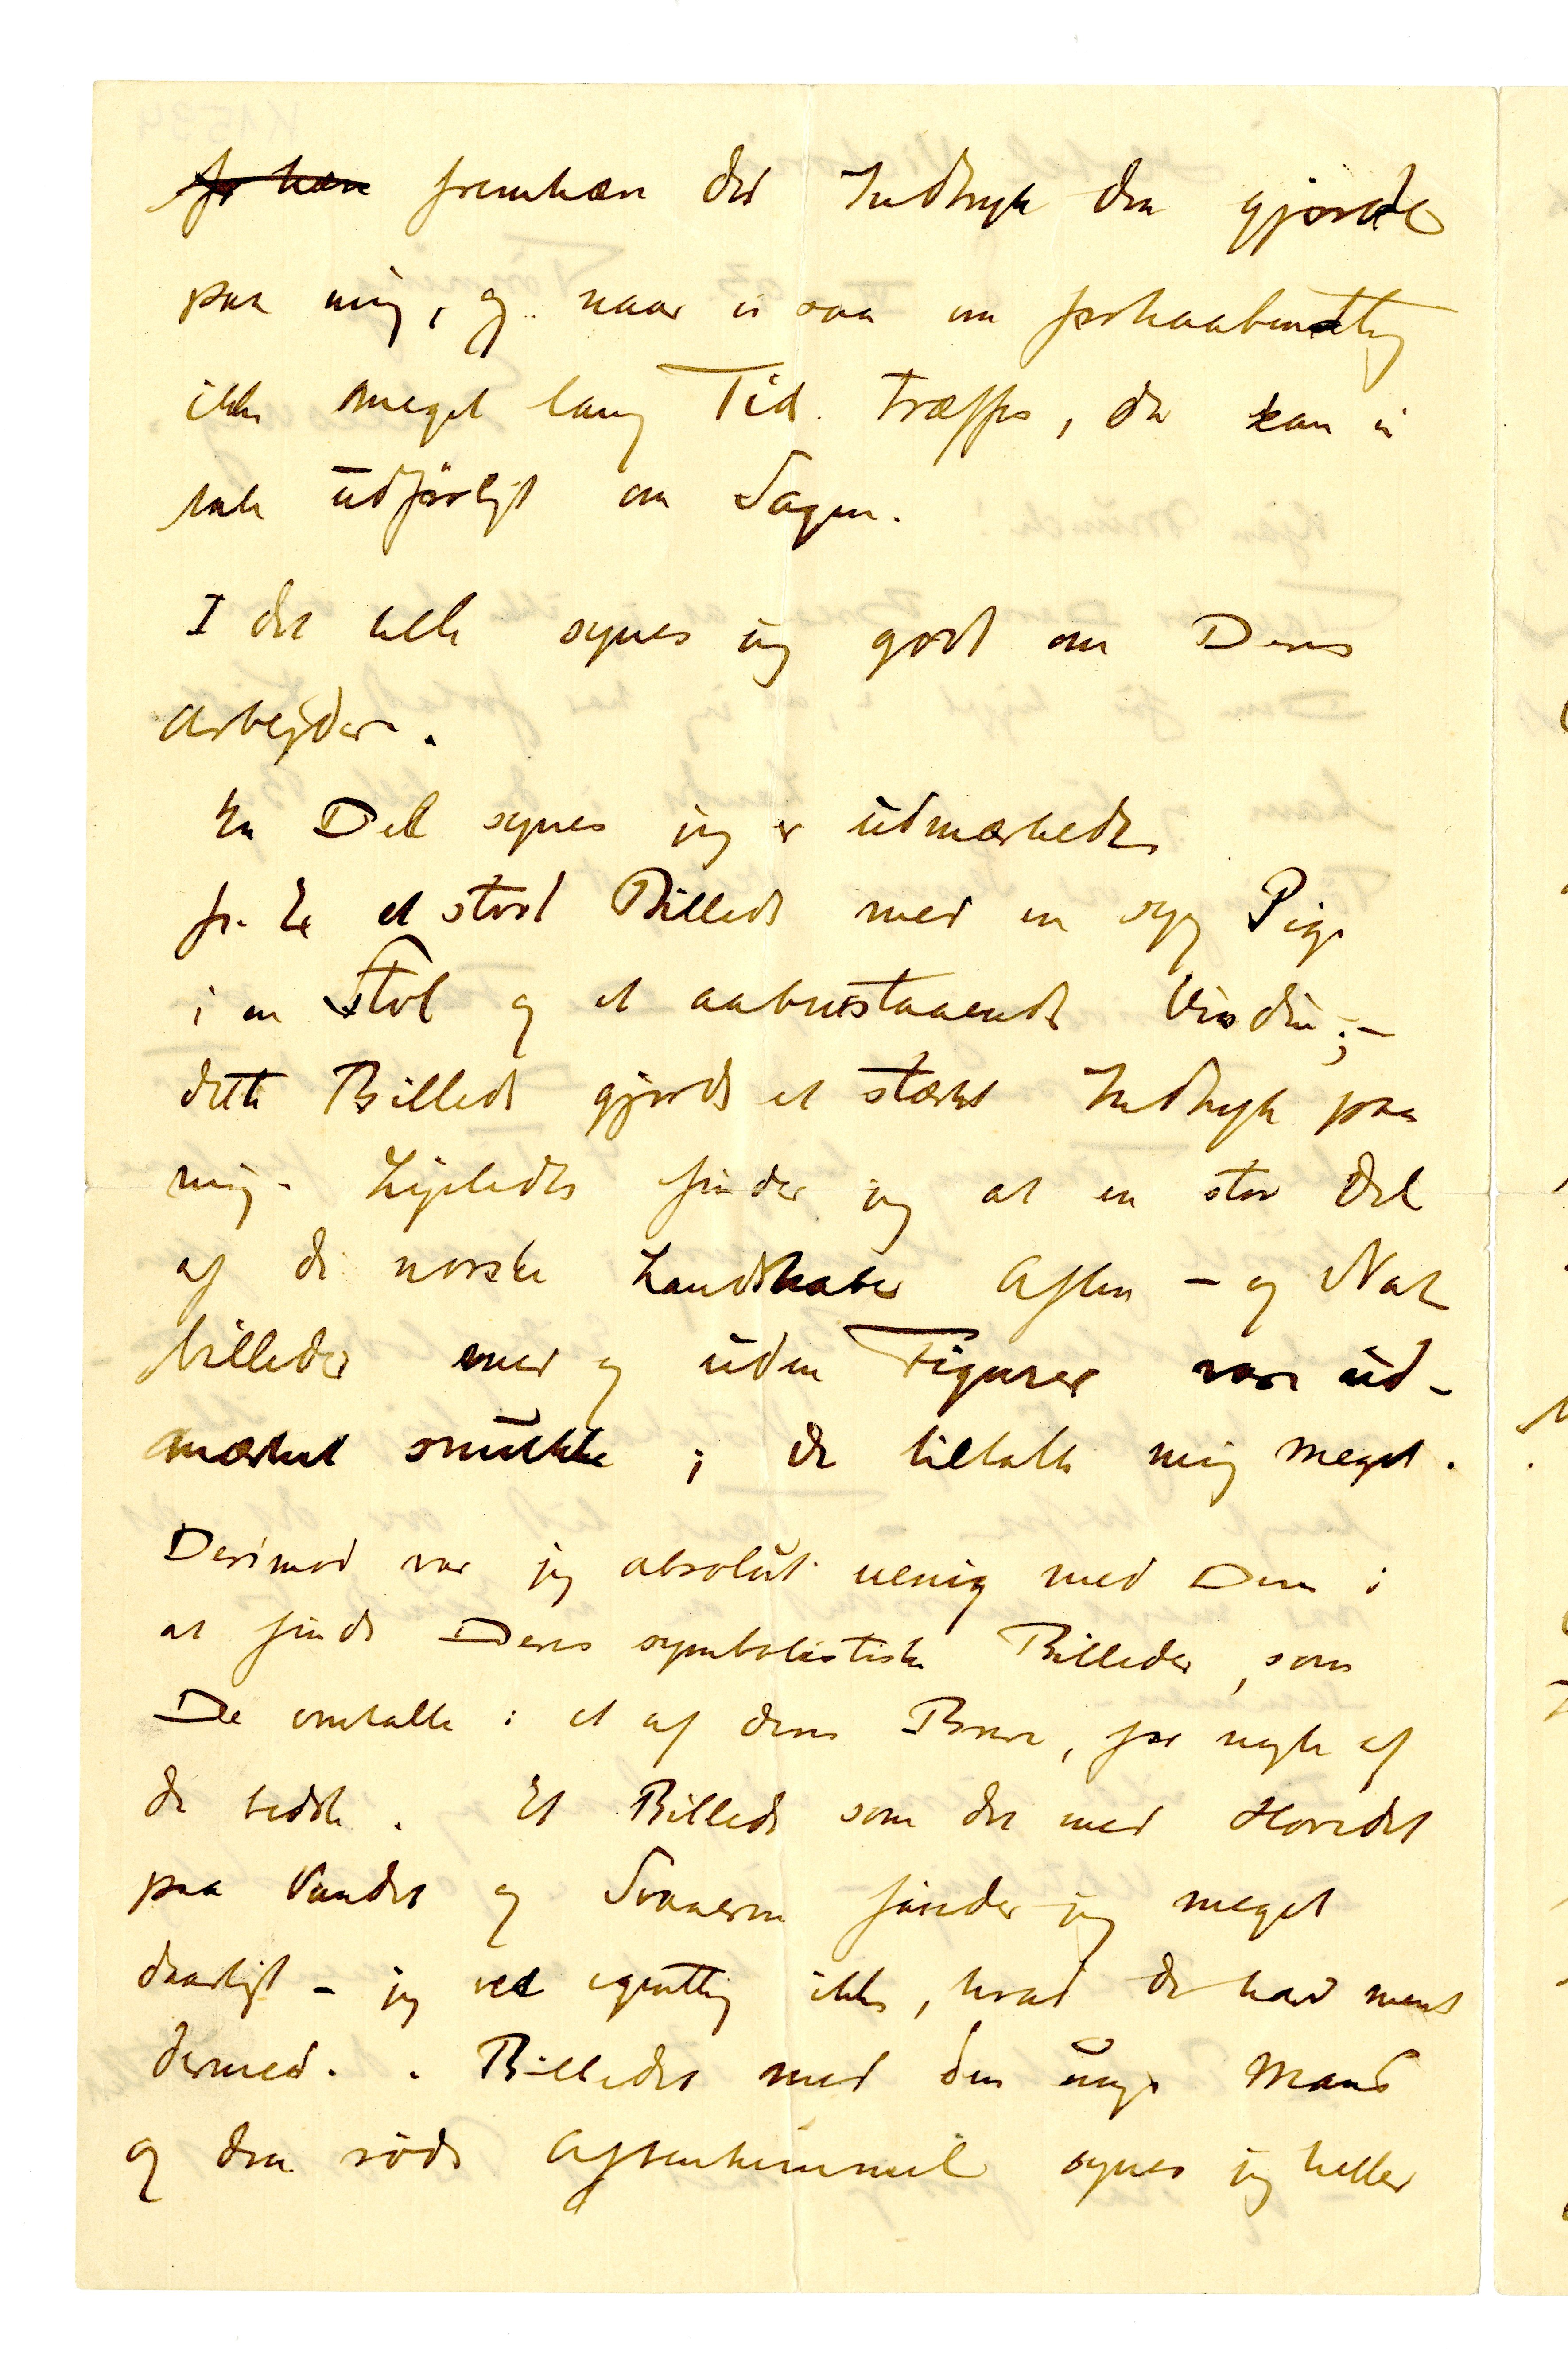 for hæve fremhæve det Indtryk den gjorde
paa mig, og naar vi saa om forhaabentlig
ikke meget lang Tid træffes, da kan vi
tale udførligt om Sagen.
I det hele synes jeg godt om Deres
Arbejder.
En Del synes jeg er udmærkede
fr. Ex et stort Billede med en syg Pige
i en Stol og et aabenstaaende Vindu; –
dette Billede gjorde et stærkt Indtryk paa
mig. Ligeledes finder jeg at en stor Del
af de norske Landskaber Aften – og Nat
billeder med og uden Figurer var ud-
mærket smukke; de tiltalte mig meget.
Derimod var jeg absolut uenig med Dem i
at finde Deres symbolistiske Billeder, som
De omtalte i et af deres Breve, for nogle af
de bedste. Et Billede som det med Hovedet
paa Vandet og Svanerne finder jeg meget
daarligt – jeg ved egentlig ikke, hvad De har ment
dermed. Billedet med den unge Mand
og den røde Aftenhimmel synes jeg heller